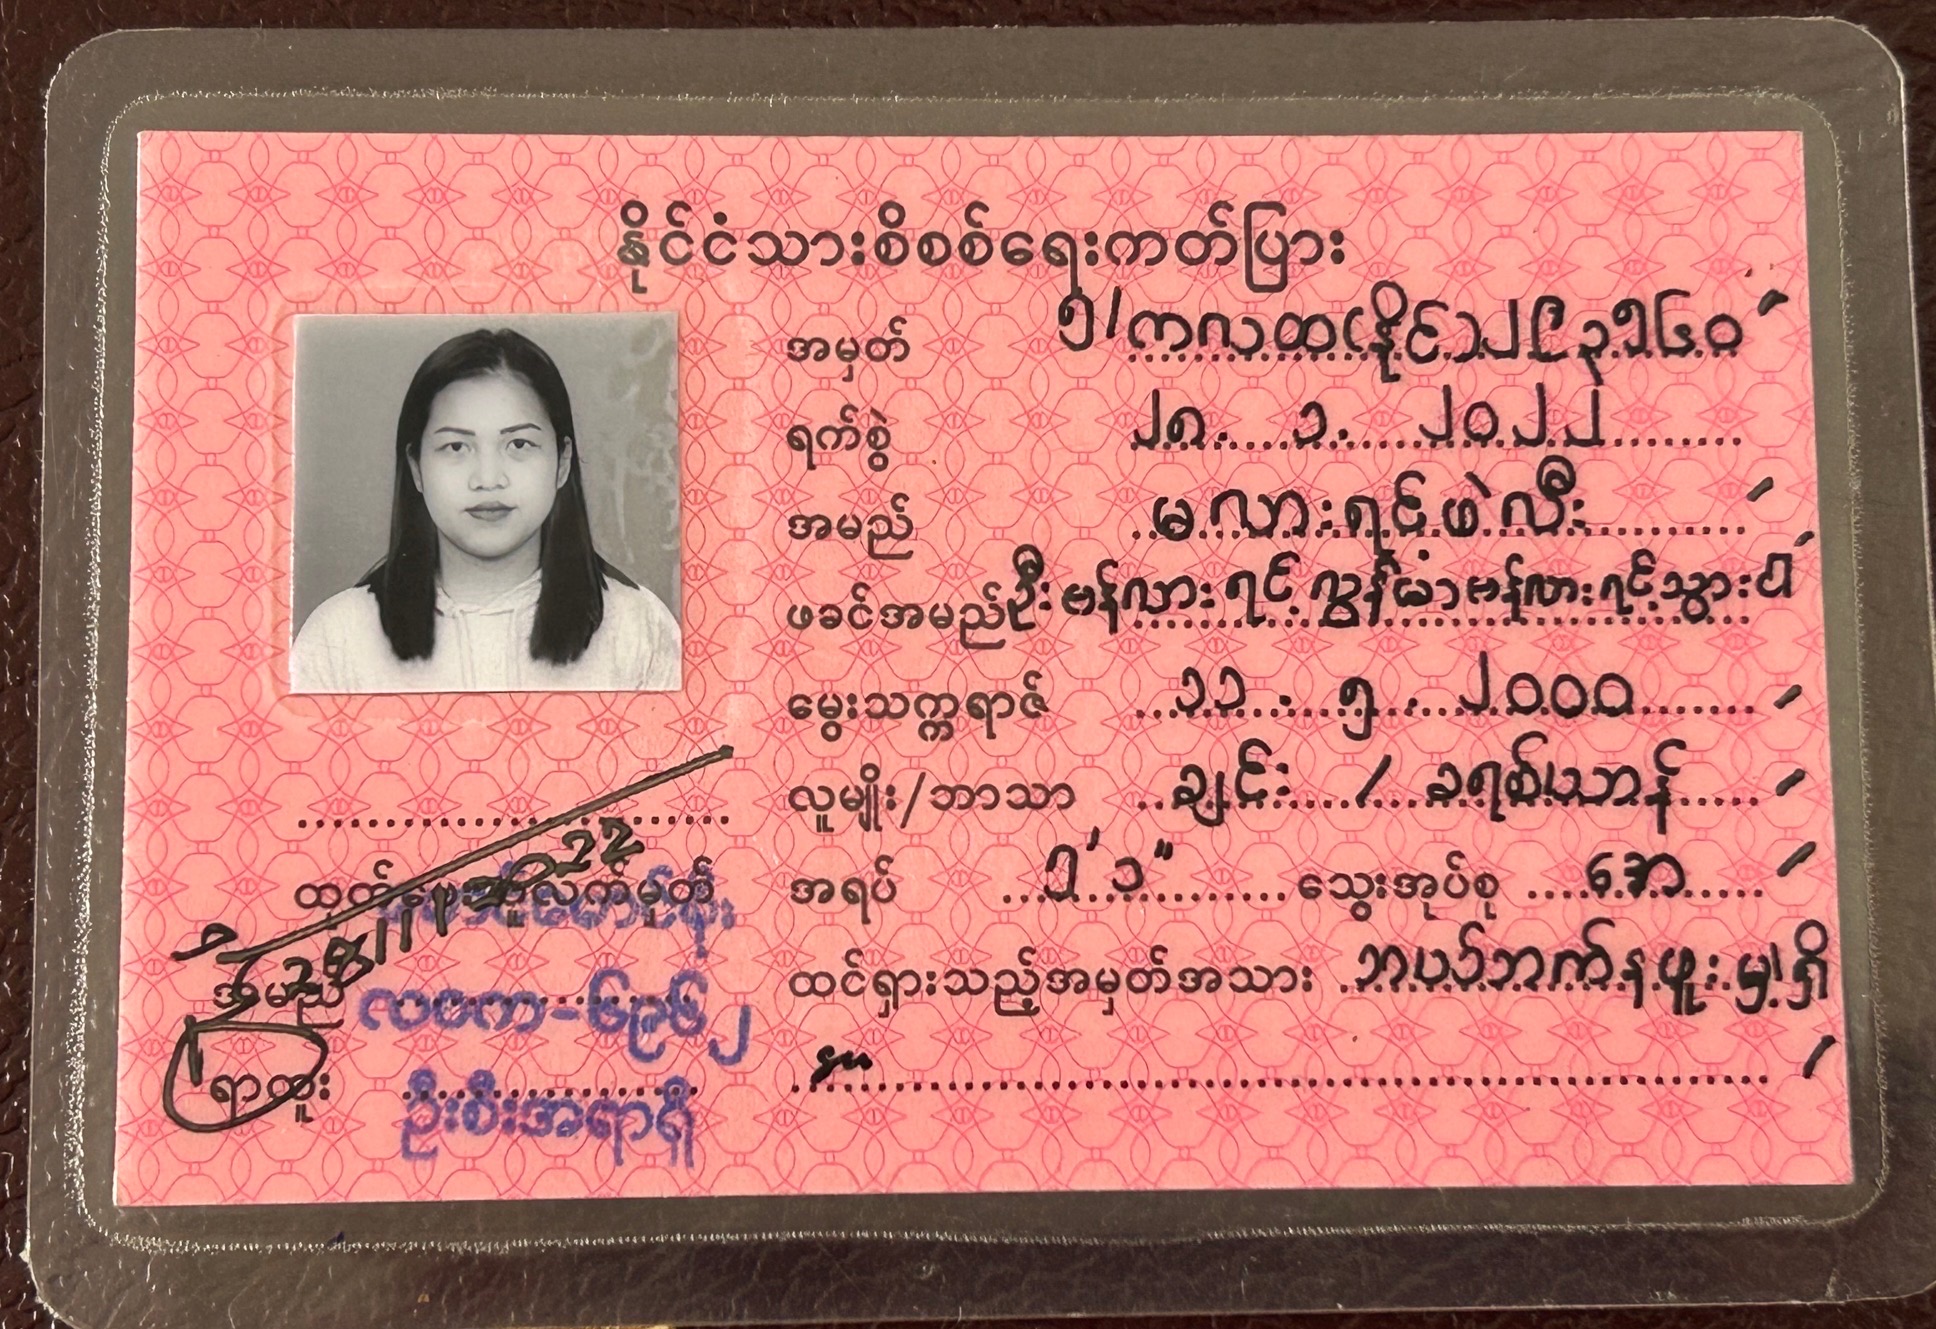 နိုင်ငံသားစိစစ်ရေးကတ်ပြား
အမှတ် ၅/ကလထ(နိုင်)၂၉၃၅၆၀
ရက်စွဲ ၂၈. ၁. ၂၀၂၂
အမည် မလားရင်ဖဲလီး
ဖခင်အမည် ဦးဗန်လားရင့်လွန်
မွေးသက္ကရာဇ် ၁၁. ၅. ၂၀၀၀
လူမျိုး/ဘာသာ ချင်း / ခရစ်ယာန်
အရပ် ၅'၁" သွေးအုပ်စု အော
ထင်ရှားသည့်အမှတ်အသား ဘယ်ဘက်နဖူးမှဲ့ရှိ
28/1/2022
ထုတ်ပေးသူလက်မှတ်
အမည် လဝက-၆၉၆၂
ရာထူး ဦးစီးအရာရှိ